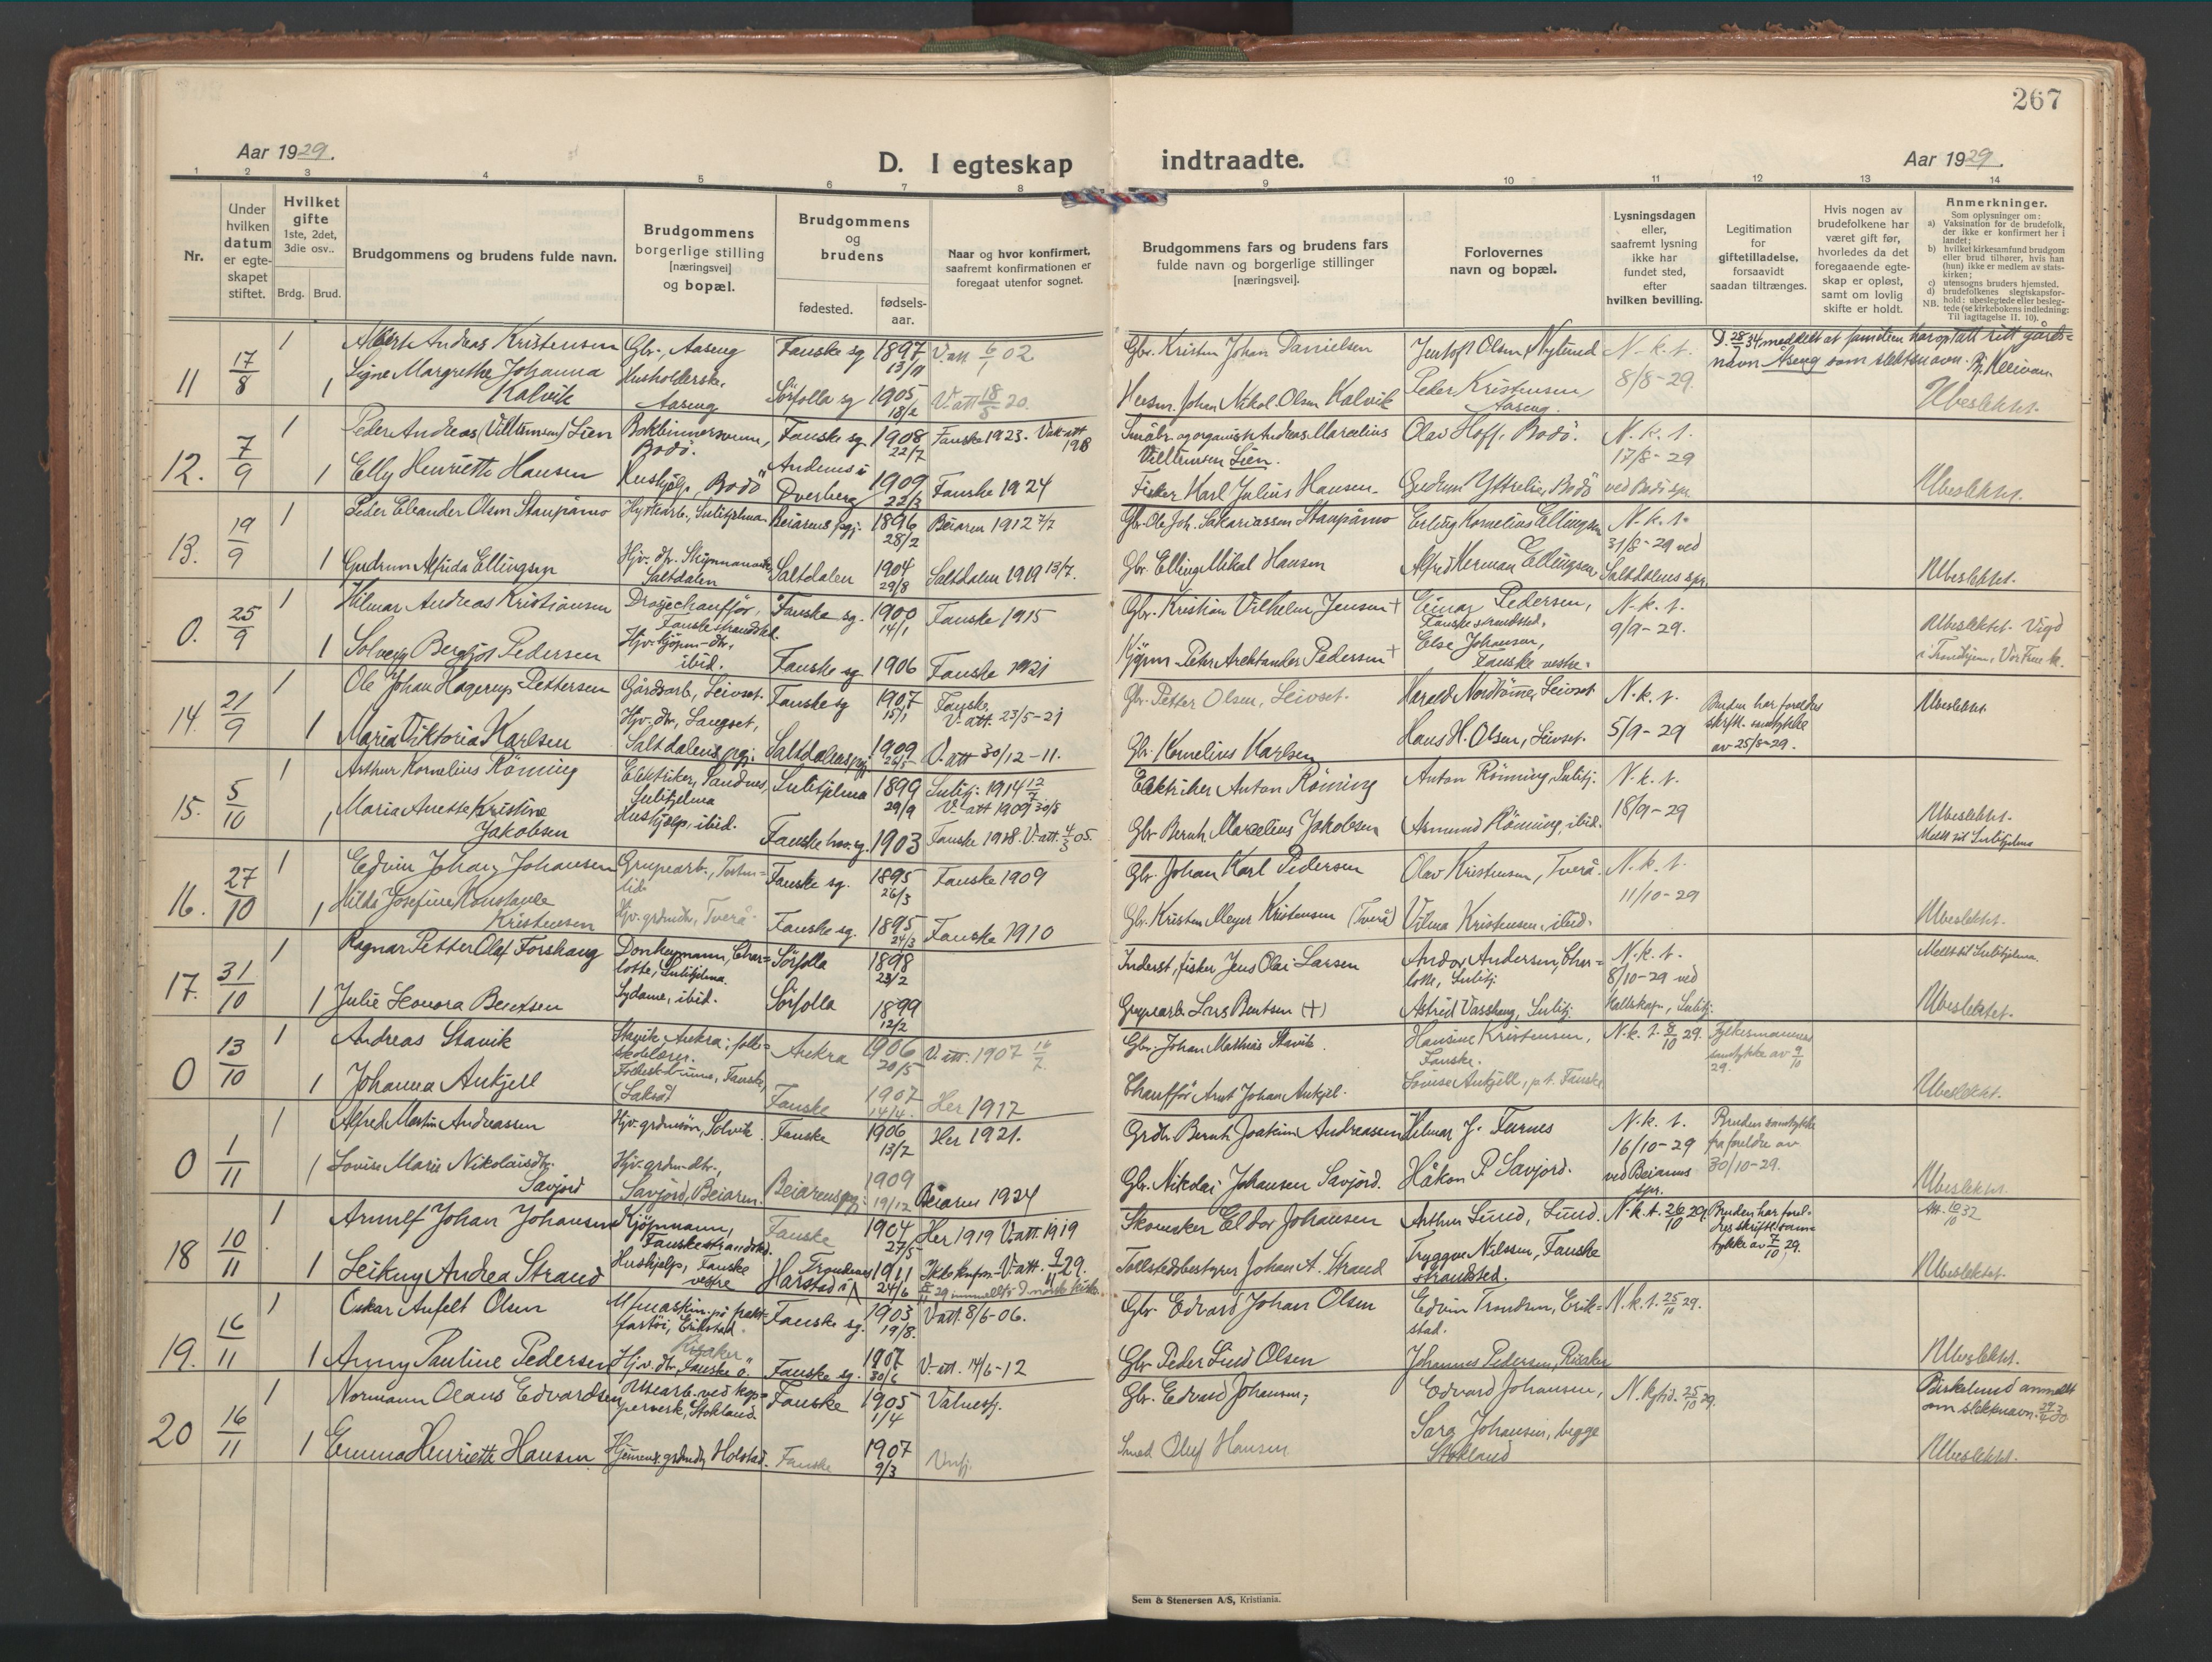 267
Aar 1929.
D. I egteskap indtraadte.
Aar 1929.
1 2 3 4 5 6 7 8 9 10 11 12 13 14
Nr.
Under hvilken datum er egte-skapet stiftet.
Hvilket gifte 1ste, 2det, 3die osv..
Brdg. Brud.
Brudgommens og brudens fulde navn.
Brudgommens borgerlige stilling [næringsvei] og bopæl.
Brudgommens og brudens
fødested.
fødsels-aar.
Naar og hvor konfirmert, saafremt konfirmationen er foregaat utenfor sognet.
Brudgommens fars og brudens fars fulde navn og borgerlige stillinger [næringsvei].
Forlovernes navn og bopæl.
Lysningsdagen eller, saafremt lysning ikke har fundet sted, efter hvilken bevilling.
Legitimation for giftetilladelse, forsaavidt saadan tiltrænges.
Hvis nogen av brudefolkene har været gift før, hvorledes da det foregaaende egte-skap er opløst, samt om lovlig skifte er holdt.
Anmerkninger.
Som oplysninger om:
a) Vaksination før de brudefolk, der ikke er konfirmert her i landet;
b) hvilket kirkesamfund brudgom eller brud tilhører, hvis han (hun) ikke er medlem av stats-kirken;
c) utensogns bruders hjemsted.
d) brudefolkenes slegtskapsfor-hold: ubeslegtede eller besleg-tede (se kirkebokens indledning: Til iagttagelse II. 10).
NB.
11 17/8 1 Albert Andreas Kristensen Gbr., Aaseng Fauske sg 1897 13/9 V. att 6/1 02 Gbr. Kristen Johan Danielsen Jentoft Olsen Nylund N. k. t. 8/8-29.
D. 28/5 34 meddelt at familien har optatt sitt gårds-navn Åseng som slektsnavn.
1 Signe Margrethe Johanna Kalvik Husholderske, Aaseng Sörfolla sg 1905 18/2 V. att 18/5 20. Husm. Johan Nikol. Olsen Kalvik Peder Kristensen Aaseng. Ubeslektet.
12. 7/9 1 Peder Andreas (Villumsen) Lien Bokbinnersvenn, Bodö. Fauske sg. 1908 22/7 Fauske 1923. Småbr. og organist Andreas Marcelius Villumsen Lien. Olav Hoff, Bodö. N. k. t. 17/8-29
1 Elly Henriette Hansen Hushjelp, Bodö Andenes i Dverberg 1909 22/3 Fauske 1924 Fisker Karl Julius Hansen. Gudrun Yttrelie, Bodö ved Bodö spr. Ubeslektet.
13. 19/9 1 Peder Eleander Olsen Staupåmo Hyttearb., Sulitjelma Beiarens pgj. 1896 28/2 Beiaren 1912 7/7 Gbr. Ole Joh. Sakariassen Staupåmo Erling Kornelius Ellingsen N. k. t. 31/8-29 ved
1 Gudrun Alfrida Ellingsen Hjv. dtr. Saltdalen Saltdalen 1904 29/8 Saltdalen 1919 13/7. Gbr Elling Mikal Hansen Alfred Herman Ellingsen Saltdalens spr. Ubeslektet.
0. 25/9 1 Hilmar Andreas Kristiansen Drosjechaufför, Fauske strandsted. Fauske sg. 1900 14/1 Fauske 1915 Gbr. Kristian Vilhelm Jensen + Einar Pedersen, Fauske strandsted, N. k. t. 9/9-29.
1 Solveig Bergljot Pedersen Hjv. kjöpm-dtr, ibid. Fauske sg. 1906 Fauske 1921 Kjöpm. Petter Areklander Pedersen + Else Johansen, Fauske vestre. Ubeslektet. Vigd i Trondhjem, Vor Frue k.
14. 21/9 1 Ole Johan Hagerup Pettersen Gårdsarb., Leivset. Fauske sg 1907 15/1 Fauske V. att. 23/5-21 Gbr. Petter Olsen, Leivset. Harald Nordtömme Leivset N. k. t. 5/9-29 Bruden har foreldres skriftl. samtykke av 25/8-29. Ubeslektet.
1 Maria Viktoria Karlsen Hjv. dtr., Langset, Saltdalens pgj. Saltdalens pgj. 1909 V. att 30/12-11. Gbr. Kornelius Karlsen Hans H. Olsen, Leivset.
15. 5/10 1 Arthur Kornelius Rönning Elektriker, Sandnes, Sulitjelma Sulitjelma 1899 29/9 Sulitj. 1914 12/7 V. att 1909 30/8 Elektriker Anton Rönning Anton Rönning, Sulitj. N. k. t. 18/9-29
1 Maria Anette Kristine Jakobsen Hushjelp, ibid. Fauske hov. sg. 1903 Fauske 1918. V. att. 4/3 05. Gbr. Bernt Marcelius Jakobsen Asmund Rönning, ibid. Ubeslektet. Meldt til Sulitjelma
16. 27/10 1 Edvin Johan Johansen Grupearb., Fauske sg. 1895 26/3 Fauske 1909 Gbr. Johan Karl Pedersen Olav Kristensen, Tverå. N. k. t. 11/10-29
1 Hilda Josefine Konstanse Kristensen Hjv. grdmdtr, Tverå. Fauske sg. 1895 24/3 Fauske 1910 Gbr. Kristen Meyer Kristensen (Tverå) Vilma Kristensen, ibid. Ubeslektet.
17. 31/10 1 Ragnar Petter Olaf Forshaug Donkeymann, Charlotte, Sulitjelma. Sörfolla 1898 23/2 Inderst, fisker Jens Olai Larsen Andor Andersen, Charlotte, Sulitj. N. k. t. 8/10-29 ved Meldt til Sulitjelma.
1 Julie Leonora Bentsen Sydame, ibid. Sörfolla 1899 12/2 Grupearb. Lars Bentsen (+) Astrid Vassheng, Sulitj. Ubeslektet.
0 13/10 1 Andreas Stavik Stavik, Aukra; folkeskolelærer. Aukra 1906 20/5 V. att. 1907 16/7. Gbr. Johan Mathias Stavik. Hansine Kristensen, Fauske. N. k. t. 8/10 29. Fylkesmannens samtykke av 9/10 29.
1 Johanna Ankjell Fauske, Fauske 1907 14/4. Her 1917 Chaufför Arnt Johan Ankjel. Lovise Ankjell, p. t. Fauske Ubeslektet.
0 1/11 1 Alfred Martin Andreassen Hjv. grdmsön, Solvik. Fauske 1906 13/7 Her 1921. Grdb. Bernt Joakim Andreassen Hilmar J. Furnes N. k. t. 16/10-29 Bruden samtykke fra foreldre av 30/10-29.
1 Lovise Marie Nikolaisdtr. Savjord Hjv. grdm-dtr., Savjord, Beiaren. Beiarens pgj. 1909 19/12 Beiaren 1924 Gbr. Nikolai Johansen Savjord. Håkon P. Savjord. ved Beiarens spr. Ubeslektet.
18 10/11 1 Arnulf Johan Johansen Kjöpmann, Fauske strandsted. Fauske 1904 27/5 Her 1919 V. att. 1919 Skomaker Eldor Johansen Arthur Lund, Lund. N. k. t. 26/10 29. Bruden har foreldres skriftl. samtykke av 7/10 29. Att. 10/10 32
1 Leikny Andrea Strand Hushjelp, Fauske vestre Harstad i Trondenes 1911 24/6 Ikke konfirm. V. att. 9/11 29. Tollstedsbestyrer Johan A. Strand Tryggve Nilssen, Fauske strandsted. Ubeslektet.
19. 16/11 1 Oskar Anfelt Olsen Erikstad. Fauske sg. 1903 19/8. V. att. 8/6-06. Gbr. Edvard Johan Olsen Edvin Trondsen, Erikstad. N. k. t. 25/10 29.
1 Anny Pauline Pedersen Hjv. dtr, Fauske ö. Risaker Fauske sg. 1907 30/6 V. att. 14/6-12 Gbr. Peder Lind Olsen Johannes Pedersen, Risaker Ubeslektet.
20 16/11 1 Normann Olaus Edvardsen Utearb. ved kopperverk, Stokland. Fauske 1905 1/4 Valnesfj. Gbr. Edvard Johansen, Edvard Johansen, 25/10 29. Birkelund anmeldt som slektsnavn
1 Emma Henriette Hansen Hjemmev. grdmdtr, Holstad. Fauske 1907 9/3 Vnfj. Smed Oluf Hansen Sara Johansen, begge Stokland Ubeslektet.
Sem & Stenersen A/S, Kristiania.